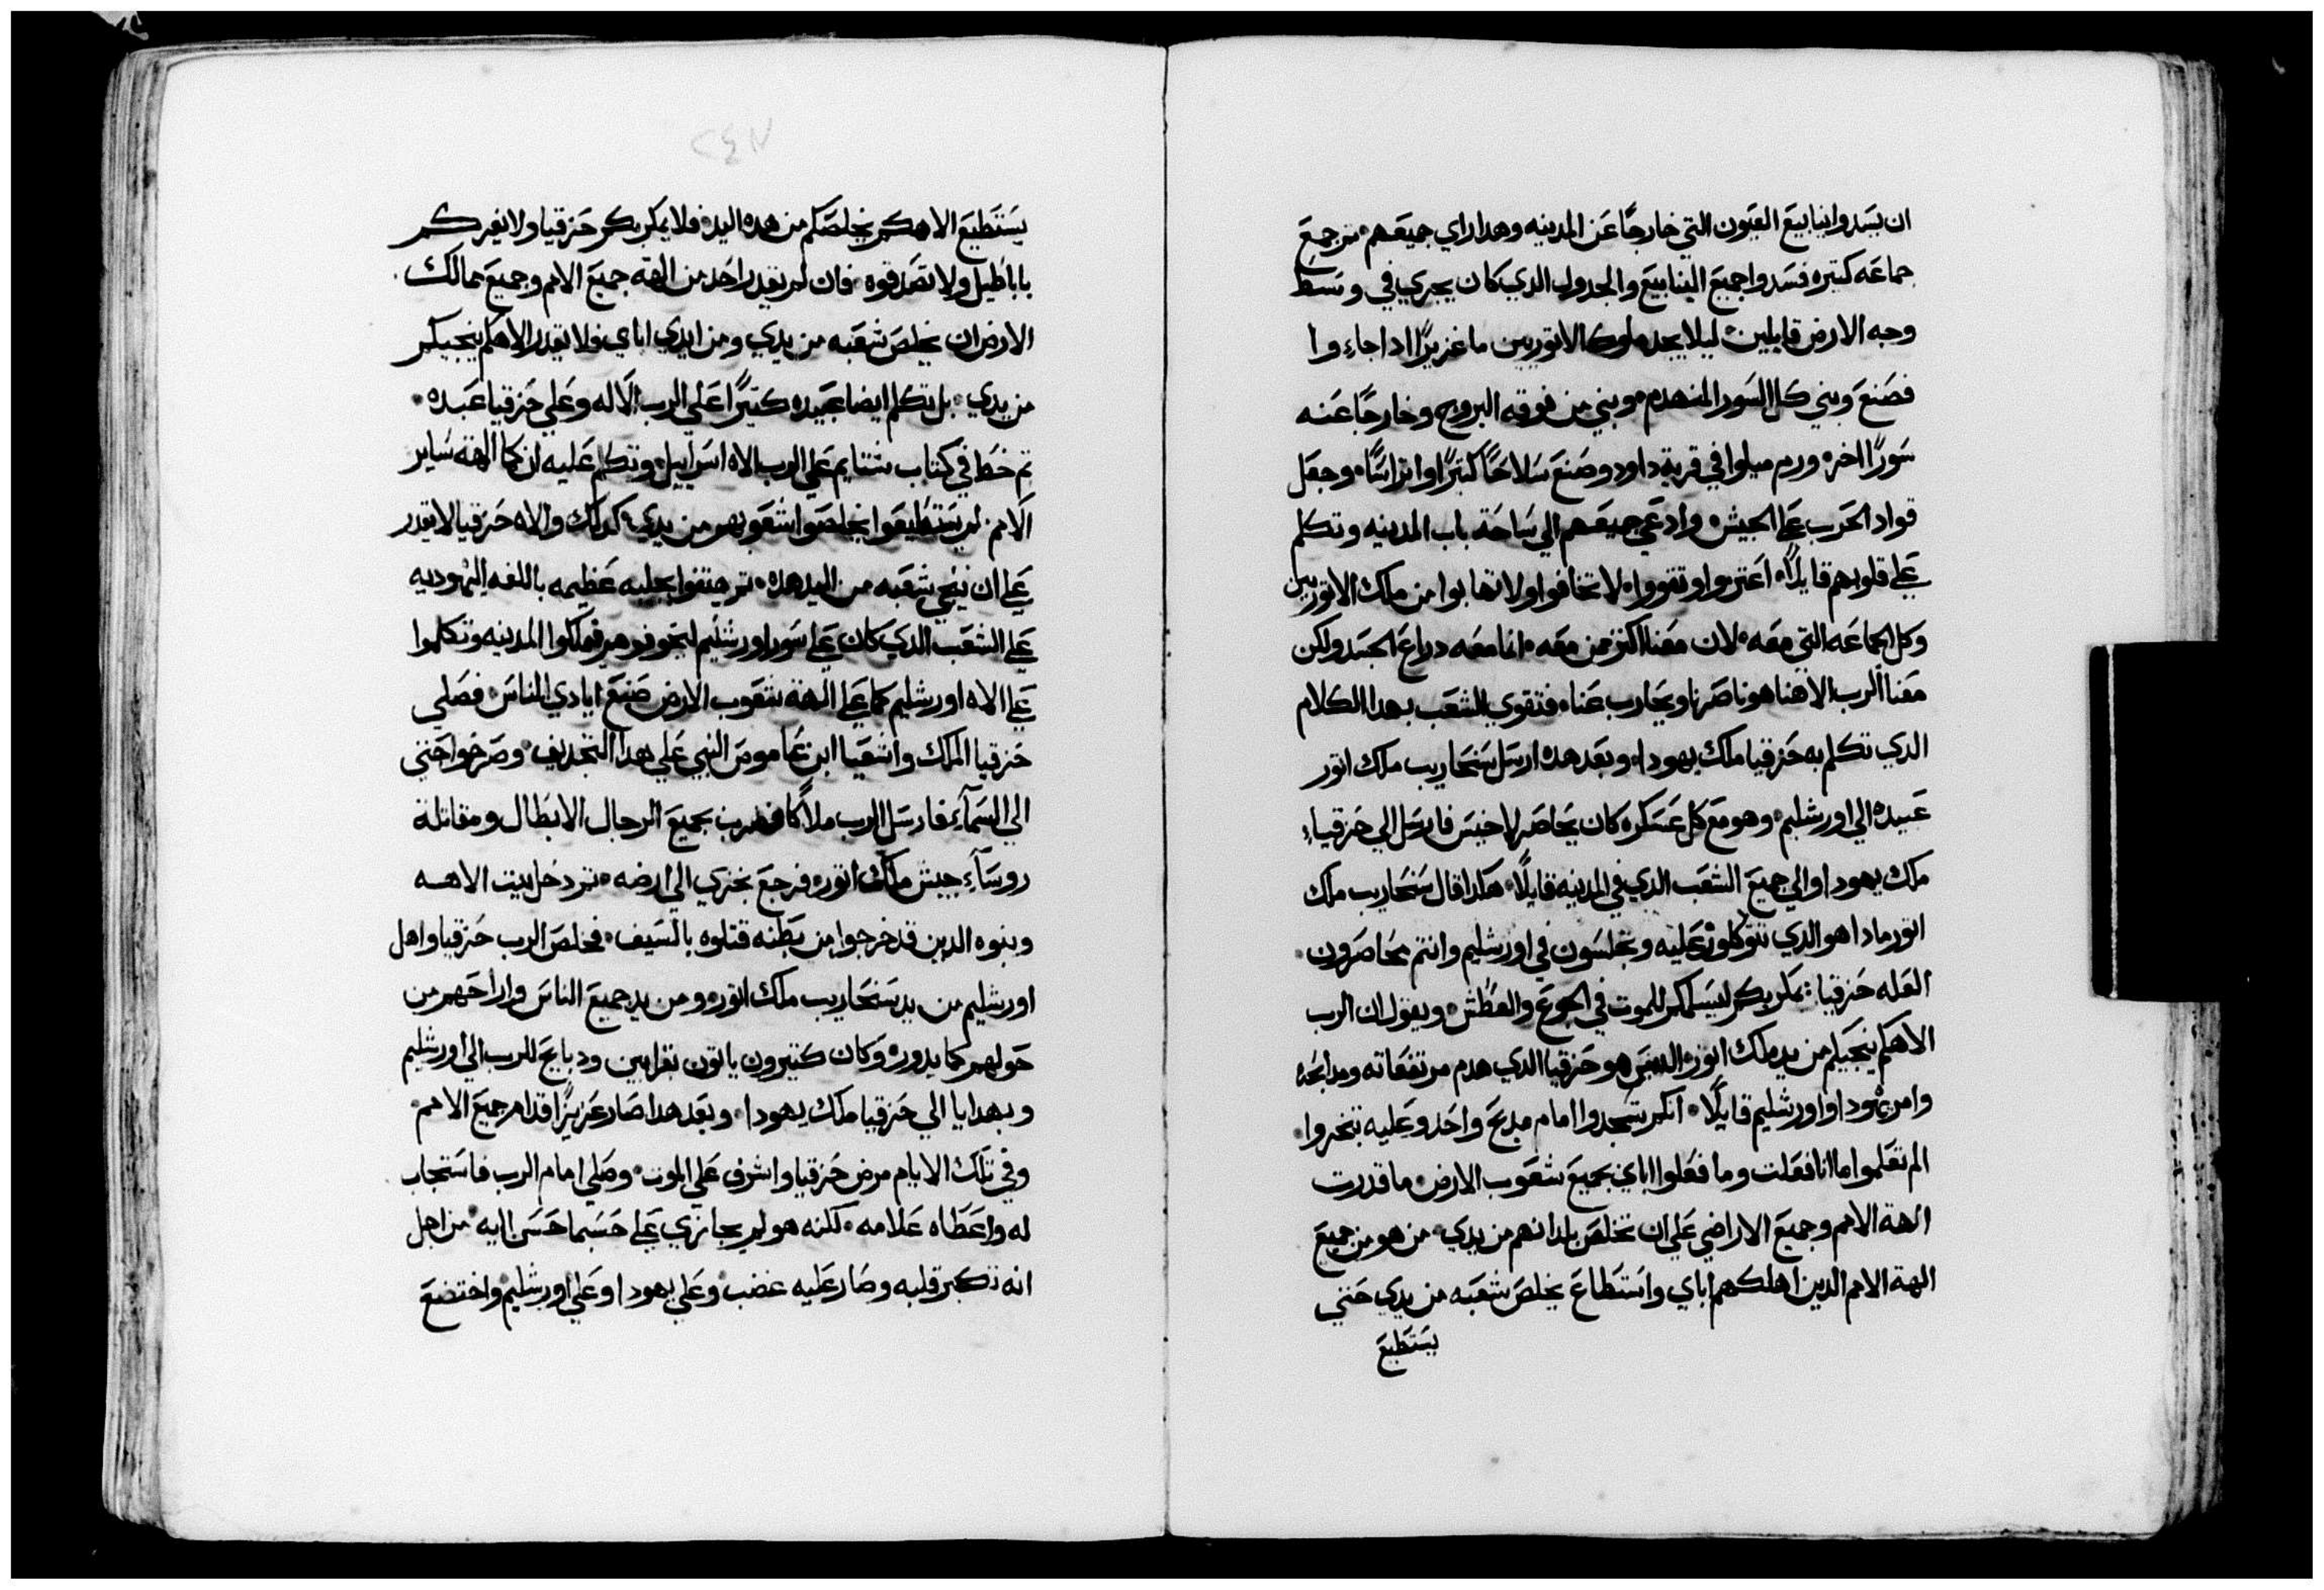 ان يسدوا ينابيع العيون التي خارجًا عن المدينه وهدا راي جميعهم ثم جمع
جماعه كتيره فسدوا جميع الينابيع والجدول الدي كان يجري في وسط
وجه الارض قايلين ليلا يجد ملوك الاتوريين ما غزيرًا ادا جاءوا
فصنع وبني كل السور المنهدم وبني من فوقه البروج وخارجًا عنه
سورًا اخر ورمم ميلوا في قرية داود وصنع سلاحًا كتيرًا واتراسًا وجعل
قواد الحرب علي الجيش وادعي جميعهم الي ساحة باب المدينه وتكلم
علي قلوبهم قايلًا اعتزوا وتقووا لا تخافوا ولا تهابوا من ملك الاتوريين
وكل الجماعه التي معه لان معنا اكتر ممن معه انما معه دراع الجسد ولكن
معنا الرب الاهنا هو ناصرنا ويحارب عنا فتقوي الشعب بهدا الكلام
الدي تكلم به حزقيا ملك يهودا وبعد هده ارسل سنحاريب ملك اتور
عبيده الي اورشليم وهو مع كل عسكره كان يحاصر لاخيس فارسل الي حزقياء
ملك يهودا والي جميع الشعب الدي في المدينه قايلًا هكدا قال سنحاريب ملك
اتور مادا هو الدي تتوكلون عليه وتجلسون في اورشليم وانتم محاصرون
العله حزقيا يمكر بكم ليسلمكم للموت في الجوع والعطش ويقول ان الرب
الاهكم ينجيكم من يد ملك اتور اليس هو حزقيا الدي هدم مرتفعاته ومدابحه
وامر يهودا واورشليم قايلًا انكم تسجدوا امام مدبح واحد وعليه تبخروا
الم تعلموا ما انا فعلت وما فعلوا اباي بجميع شعوب الارض ما قدرت
الهة الامم وجميع الاراضي علي ان تخلص بلدانهم من يدي من هو من جميع
الهة الامم الدين اهلكهم اباي واستطاع يخلص شعبه من يدي حتي
يستطيع
٢٤٧
يستطيع الاهكم يخلصكم من هده اليد فلا يمكر بكم حزقيا ولا يغركم
باباطيل ولا تصدقوه فان لم يقدر احد من الهة جميع الامم وجميع ممالك
الارض ان يخلص شعبه من يدي ومن ايدي اباي ولا يقدر الاهكم ينجيكم
من يدي بل تكلم ايضا عبيده كتيرًا علي الرب الاله وعلي حزقيا عبده
تم خط في كتاب شتايم علي الرب الاه اسراييل وتكلم عليه ان كما الهة ساير
الامم لم يستطيعوا يخلصوا شعوبهم من يدي كدلك والاه حزقيا لا يقدر
علي ان ينجي شعبه من اليد هده تم هتفوا بجلبه عظيمه باللغه اليهوديه
علي الشعب الدي كان علي سور اورشليم ليخوفوهم ويملكوا المدينه وتكلموا
علي الاه اورشليم كما علي الهة شعوب الارض صنع ايادي الناس فصلي
حزقيا الملك واشعيا ابن عاموص النبي علي هدا التجديف وصرخوا حتي
الي السمآء فارسل الرب ملاكًا فضرب جميع الرجال الابطال ومقاتلة
روسآء جيش ملك اتور فرجع بخزي الي ارضه تم دخل بيت الاهه
وبنوه الدين قد خرجوا من بطنه قتلوه بالسيف فخلص الرب حزقيا واهل
اورشليم من يد سنحاريب ملك اتور ومن يد جميع الناس واراحهم من
حولهم كما يدور وكان كتيرون ياتون بقرابين ودبايح للرب الي اورشليم
وبهدايا الي حزقيا ملك يهودا وبعد هدا صار عزيزًا قدام جميع الامم
وفي تلك الايام مرض حزقيا واشرف علي الموت وصلي امام الرب فاستجاب
له واعطاه علامه لكنه هو لم يجازي علي حسبما حسن اليه من اجل
انه تكبر قلبه وصار عليه غضب وعلي يهودا وعلي اورشليم واختضع